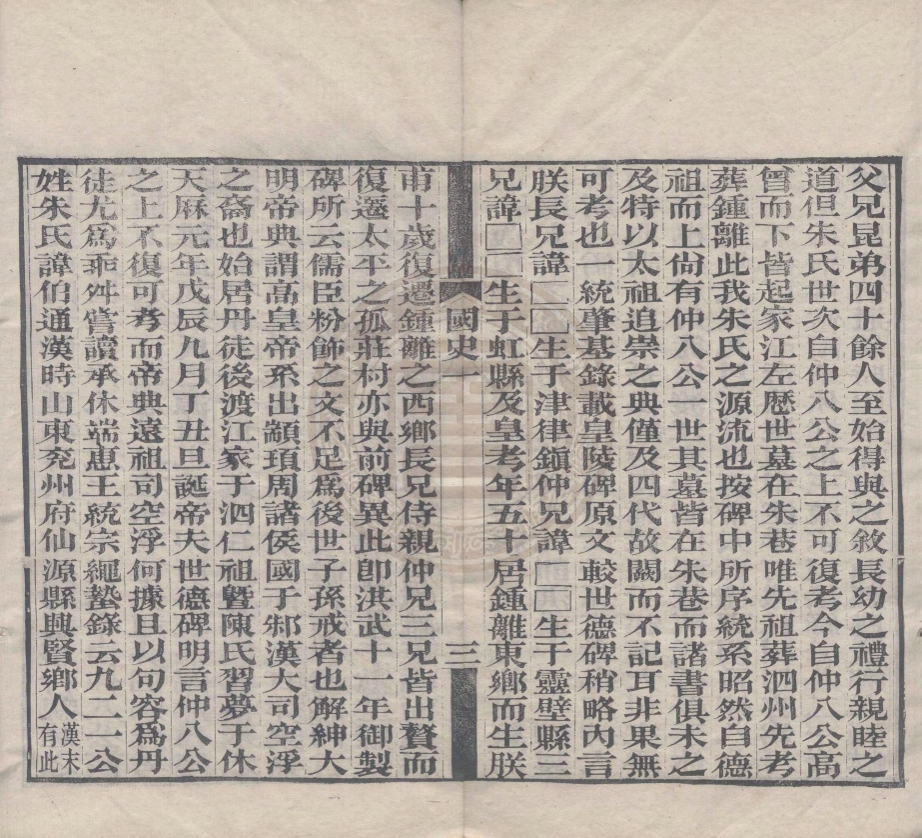 父兄昆弟四十餘人至始得與之敘長幼之禮行親睦之
道但朱氏世次自仲八公之上不可復考今自仲八公高
曾而下皆起家江左歷世墓在朱巷唯先祖葬泗州先考
葬鍾離此我朱氏之源流也按碑中所序統系昭然自德
祖而上尚有仲八公一世其墓皆在朱巷而諸書俱未之
及特以太祖追崇之典僅及四代故闕而不記耳非果無
可考也一統肇基錄載皇陵碑原文較世德碑稍略內言
朕長兄諱□□生于津律鎮仲兄諱□□生于靈壁縣三
兄諱□□生于虹縣及皇考年五十居鍾離東鄉而生朕
國史一
三
甫十歲復遷鍾離之西鄉長兄侍親仲兄三兄皆出贅而
復遷太平之孤莊村亦與前碑異此卽洪武十一年御製
碑所云儒臣粉飾之文不足爲後世子孫戒者也解紳大
明帝典謂高皇帝系出顓頊周諸侯國于邾漢大司空浮
之裔也始居丹徒後渡江家于泗仁祖曁陳氏習夢于休
天厤元年戊辰九月丁丑旦誕帝夫世德碑明言仲八公
之上不復可考而帝典遠祖司空浮何據且以句容爲丹
徒尤爲乖舛嘗讀承休端惠王統宗繩蟄錄云九二一公
姓朱氏諱伯通漢時山東兖州府仙源縣興賢鄉人漢末有此